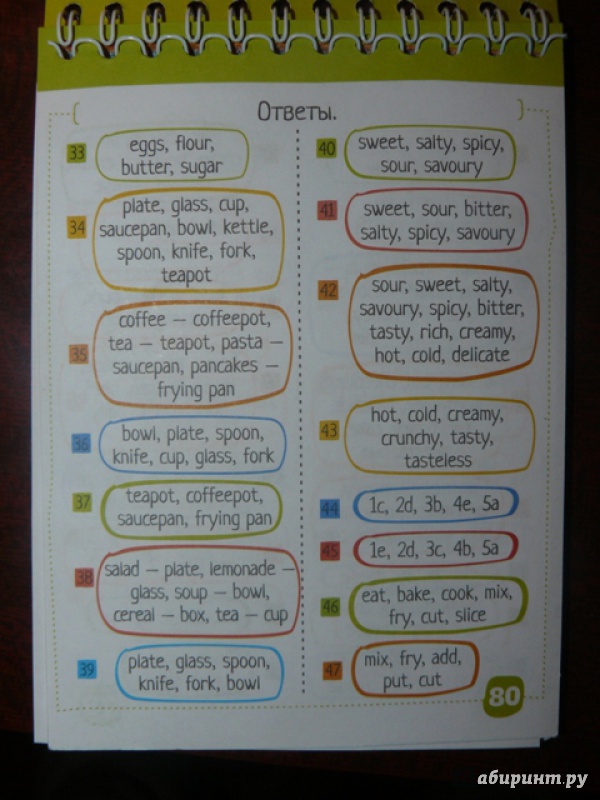 Ответы.
33
eggs, flour,
butter, sugar
34
plate, glass, cup,
saucepan, bowl, kettle,
spoon, knife, fork,
teapot
35
coffee — coffeepot,
tea — teapot, pasta —
saucepan, pancakes —
frying pan
36
bowl, plate, spoon,
knife, cup, glass, fork
37
teapot, coffeepot,
saucepan, frying pan
38
salad — plate, lemonade —
glass, soup — bowl,
cereal — box, tea — cup
39
plate, glass, spoon,
knife, fork, bowl
40
sweet, salty, spicy,
sour, savoury
41
sweet, sour, bitter,
salty, spicy, savoury
42
sour, sweet, salty,
savoury, spicy, bitter,
tasty, rich, creamy,
hot, cold, delicate
43
hot, cold, creamy,
crunchy, tasty,
tasteless
44
1c, 2d, 3b, 4e, 5a
45
1e, 2d, 3c, 4b, 5a
46
eat, bake, cook, mix,
fry, cut, slice
47
mix, fry, add,
put, cut
80
абиринт.ру